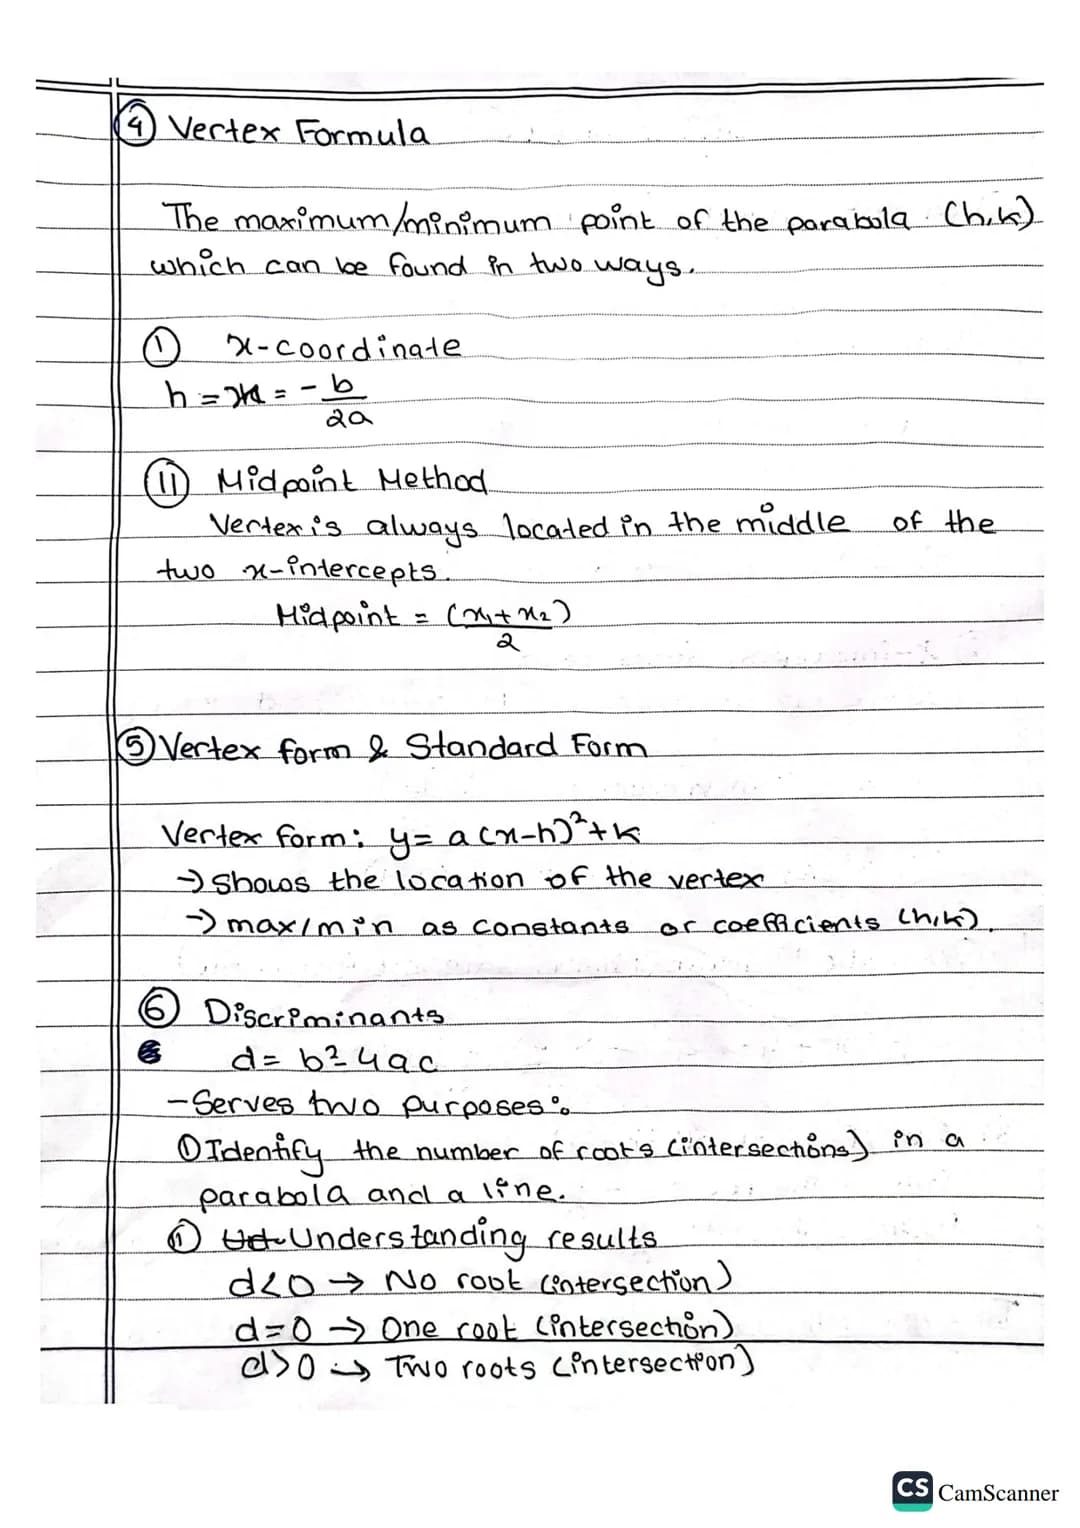 ④ Vertex Formula
The maximum/minimum point of the parabola (h,k)
which can be found in two ways.
① x-coordinate
h = x = -b/2a
⑪ Midpoint Method
Vertex is always located in the middle of the
two x-intercepts.
Midpoint = (x₁+x₂)/2
⑤ Vertex form & Standard Form
Vertex form: y= a(x-h)²+k
→ Shows the location of the vertex
→ max/min as constants or coefficients (h,k).
⑥ Discriminants
d= b²-4ac
-Serves two purposes:
① Identify the number of root's (intersections) in a
parabola and a line.
⑪ Understanding results
d<0 → No root (intersection)
d=0 → One root (intersection)
d>0 → Two roots (intersection)
CS CamScanner